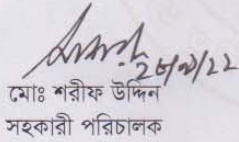 মোঃ শরীফ উদ্দিন
সহকারী পরিচালক